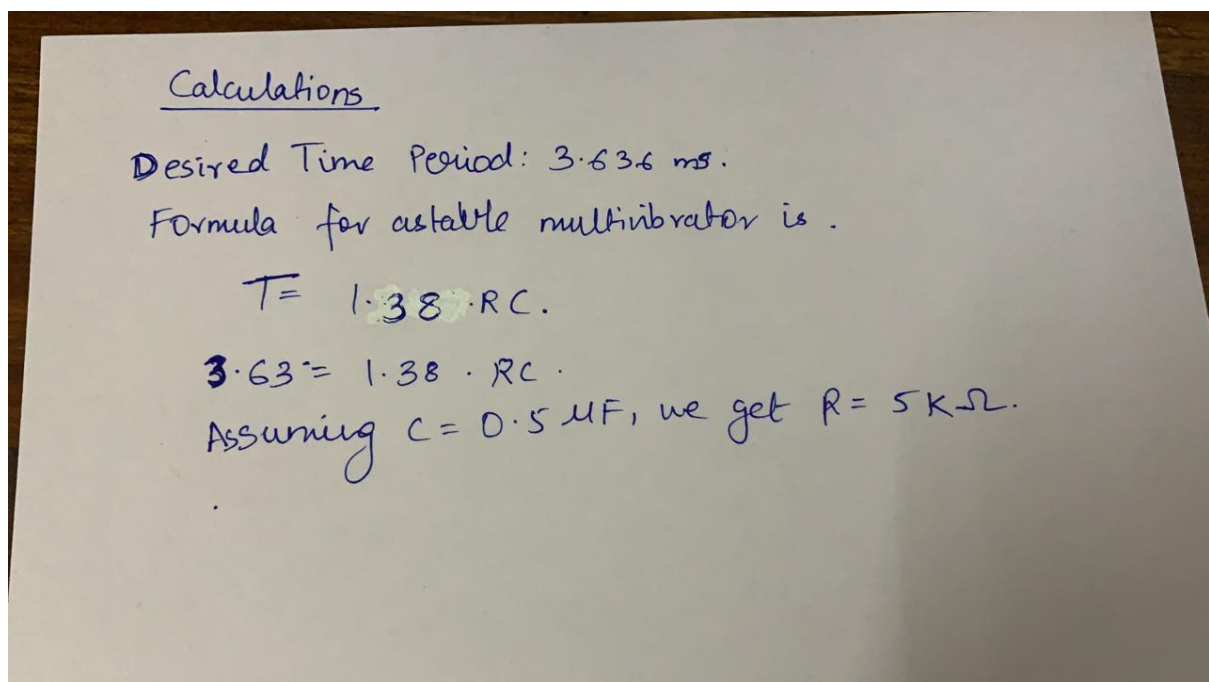 Calculations
Desired Time Period: 3.636 ms.
Formula for astable multivibrator is.
T= 1.38 .RC.
3.63= 1.38 . RC.
Assuming C= 0.5 MF, we get R= 5KΩ.